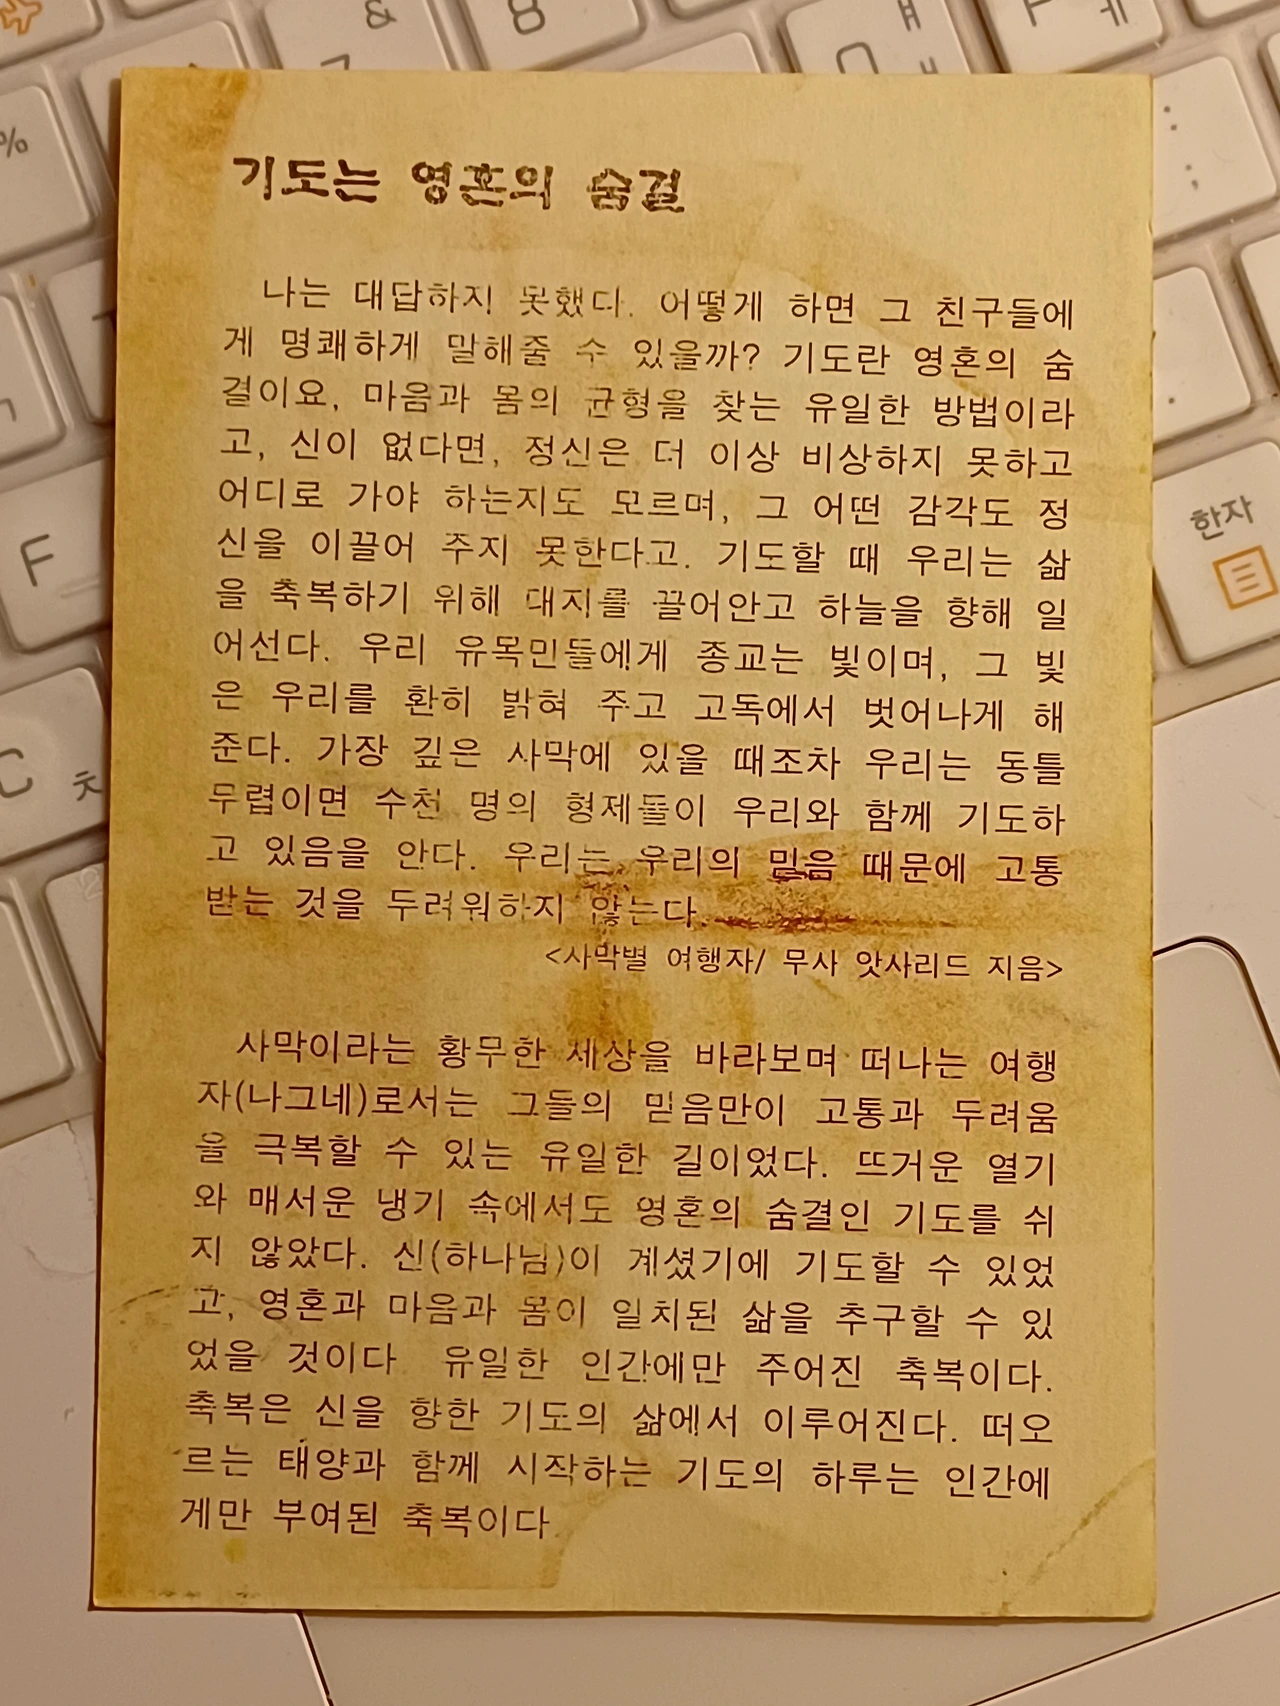 기도는 영혼의 숨결
나는 대답하지 못했다. 어떻게 하면 그 친구들에
게 명쾌하게 말해줄 수 있을까? 기도란 영혼의 숨
결이요, 마음과 몸의 균형을 찾는 유일한 방법이라
고, 신이 없다면, 정신은 더 이상 비상하지 못하고
어디로 가야 하는지도 모르며, 그 어떤 감각도 정
신을 이끌어 주지 못한다고. 기도할 때 우리는 삶
을 축복하기 위해 대지를 끌어안고 하늘을 향해 일
어선다. 우리 유목민들에게 종교는 빛이며, 그 빛
은 우리를 환히 밝혀 주고 고독에서 벗어나게 해
준다. 가장 깊은 사막에 있을 때조차 우리는 동틀
무렵이면 수천 명의 형제들이 우리와 함께 기도하
고 있음을 안다. 우리는 우리의 믿음 때문에 고통
받는 것을 두려워하지 않는다.
<사막별 여행자/ 무사 앗사리드 지음>
사막이라는 황무한 세상을 바라보며 떠나는 여행
자(나그네)로서는 그들의 믿음만이 고통과 두려움
을 극복할 수 있는 유일한 길이었다. 뜨거운 열기
와 매서운 냉기 속에서도 영혼의 숨결인 기도를 쉬
지 않았다. 신(하나님)이 계셨기에 기도할 수 있었
고, 영혼과 마음과 몸이 일치된 삶을 추구할 수 있
었을 것이다 유일한 인간에만 주어진 축복이다.
축복은 신을 향한 기도의 삶에서 이루어진다. 떠오
르는 태양과 함께 시작하는 기도의 하루는 인간에
게만 부여된 축복이다.
% & 8 ㅁ ㅐ ㅔ : ; .
F
C ㅊ
한자